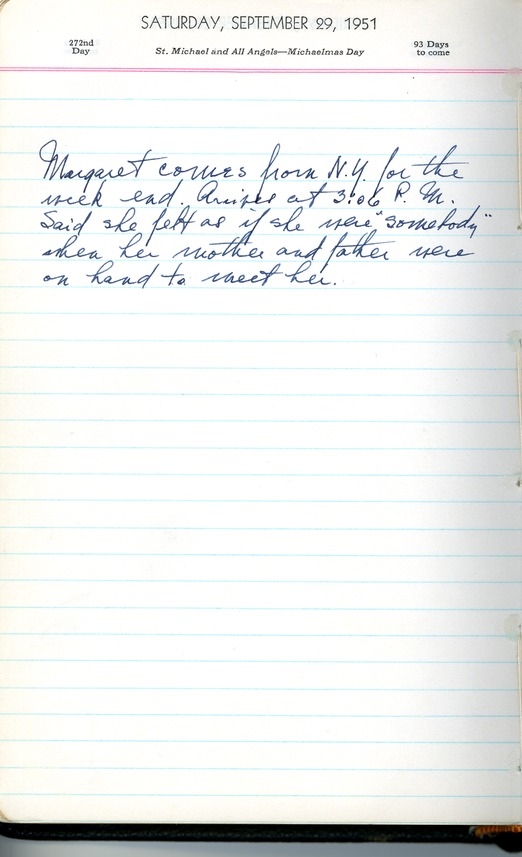 SATURDAY, SEPTEMBER 29, 1951
272nd
Day
St. Michael and All Angels—Michaelmas Day
93 Days
to come
Margaret comes from N.Y. for the
week end. Arrives at 3:06 P. M.
Said she felt as if she were "somebody"
when her mother and father were
on hand to meet her.